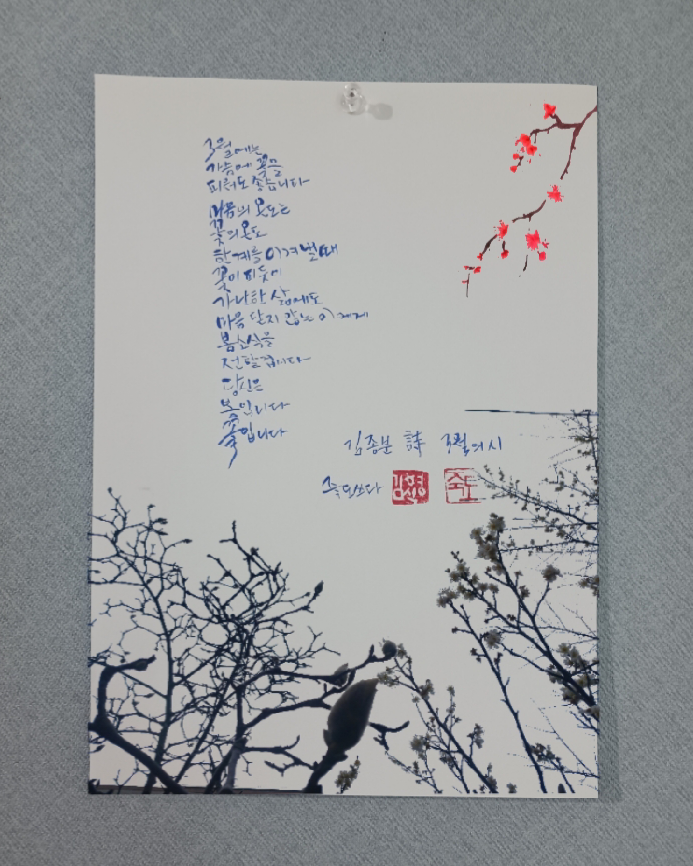 3월에는
가슴에 꽃을
피워도 좋습니다
마음의 온도는
꽃의 온도
한계를 이겨 낼 때
꽃이 피듯이
가난한 삶에도
마음 닫지 않는 이에게
봄소식을
전할 겁니다
당신은
봄입니다
꽃입니다
김종분 詩 3월의 시
쓰다